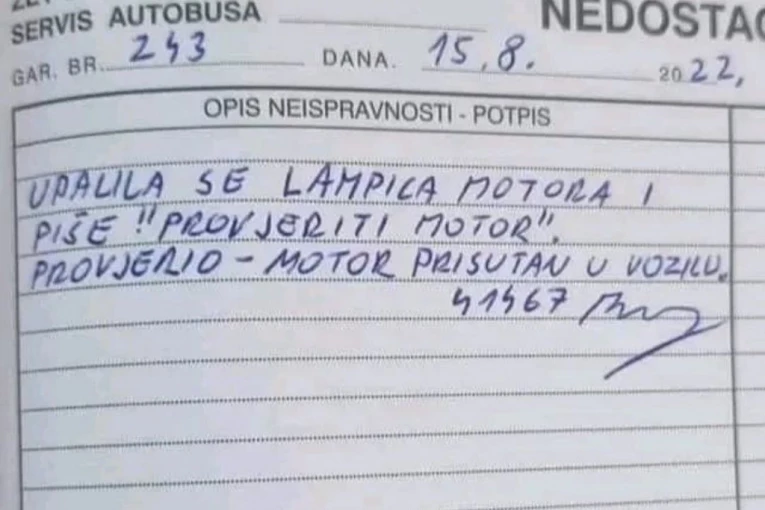 SERVIS AUTOBUSA
NEDOSTAC
GAR. BR. 243 DANA. 15.8. 2022,
OPIS NEISPRAVNOSTI - POTPIS
UPALILA SE LAMPICA MOTORA I
PIŠE "PROVJERITI MOTOR".
PROVJERIO - MOTOR PRISUTAN U VOZILU.
41467